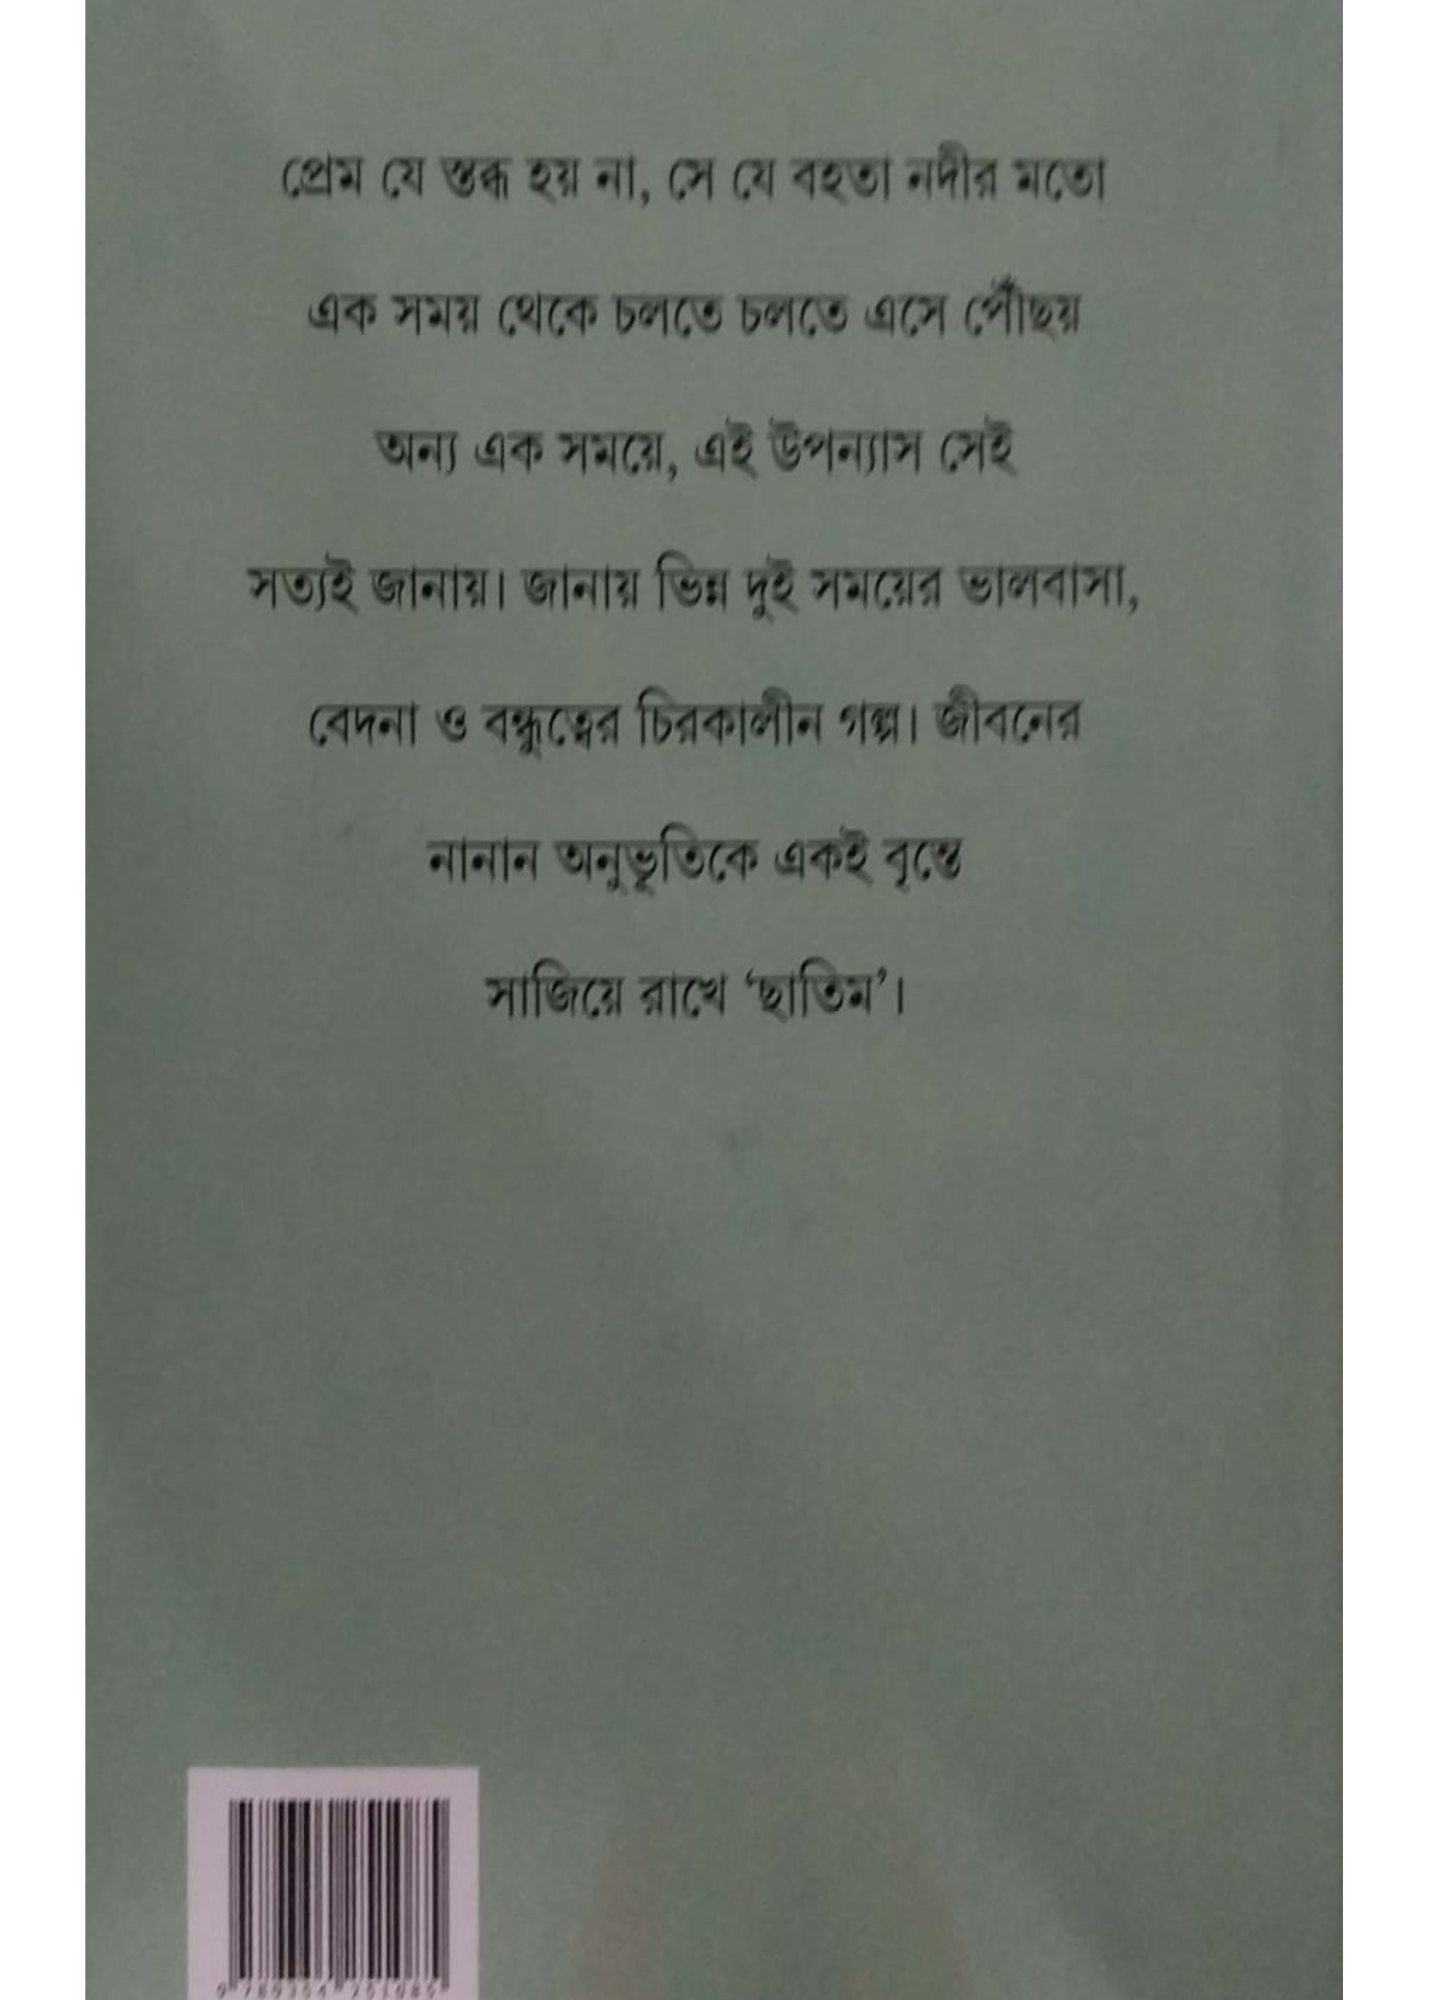 প্রেম যে স্তব্ধ হয় না, সে যে বহতা নদীর মতো
এক সময় থেকে চলতে চলতে এসে পৌঁছয়
অন্য এক সময়ে, এই উপন্যাস সেই
সত্যই জানায়। জানায় ভিন্ন দুই সময়ের ভালবাসা,
বেদনা ও বন্ধুত্বের চিরকালীন গল্প। জীবনের
নানান অনুভূতিকে একই বৃন্তে
সাজিয়ে রাখে ‘ছাতিম’।